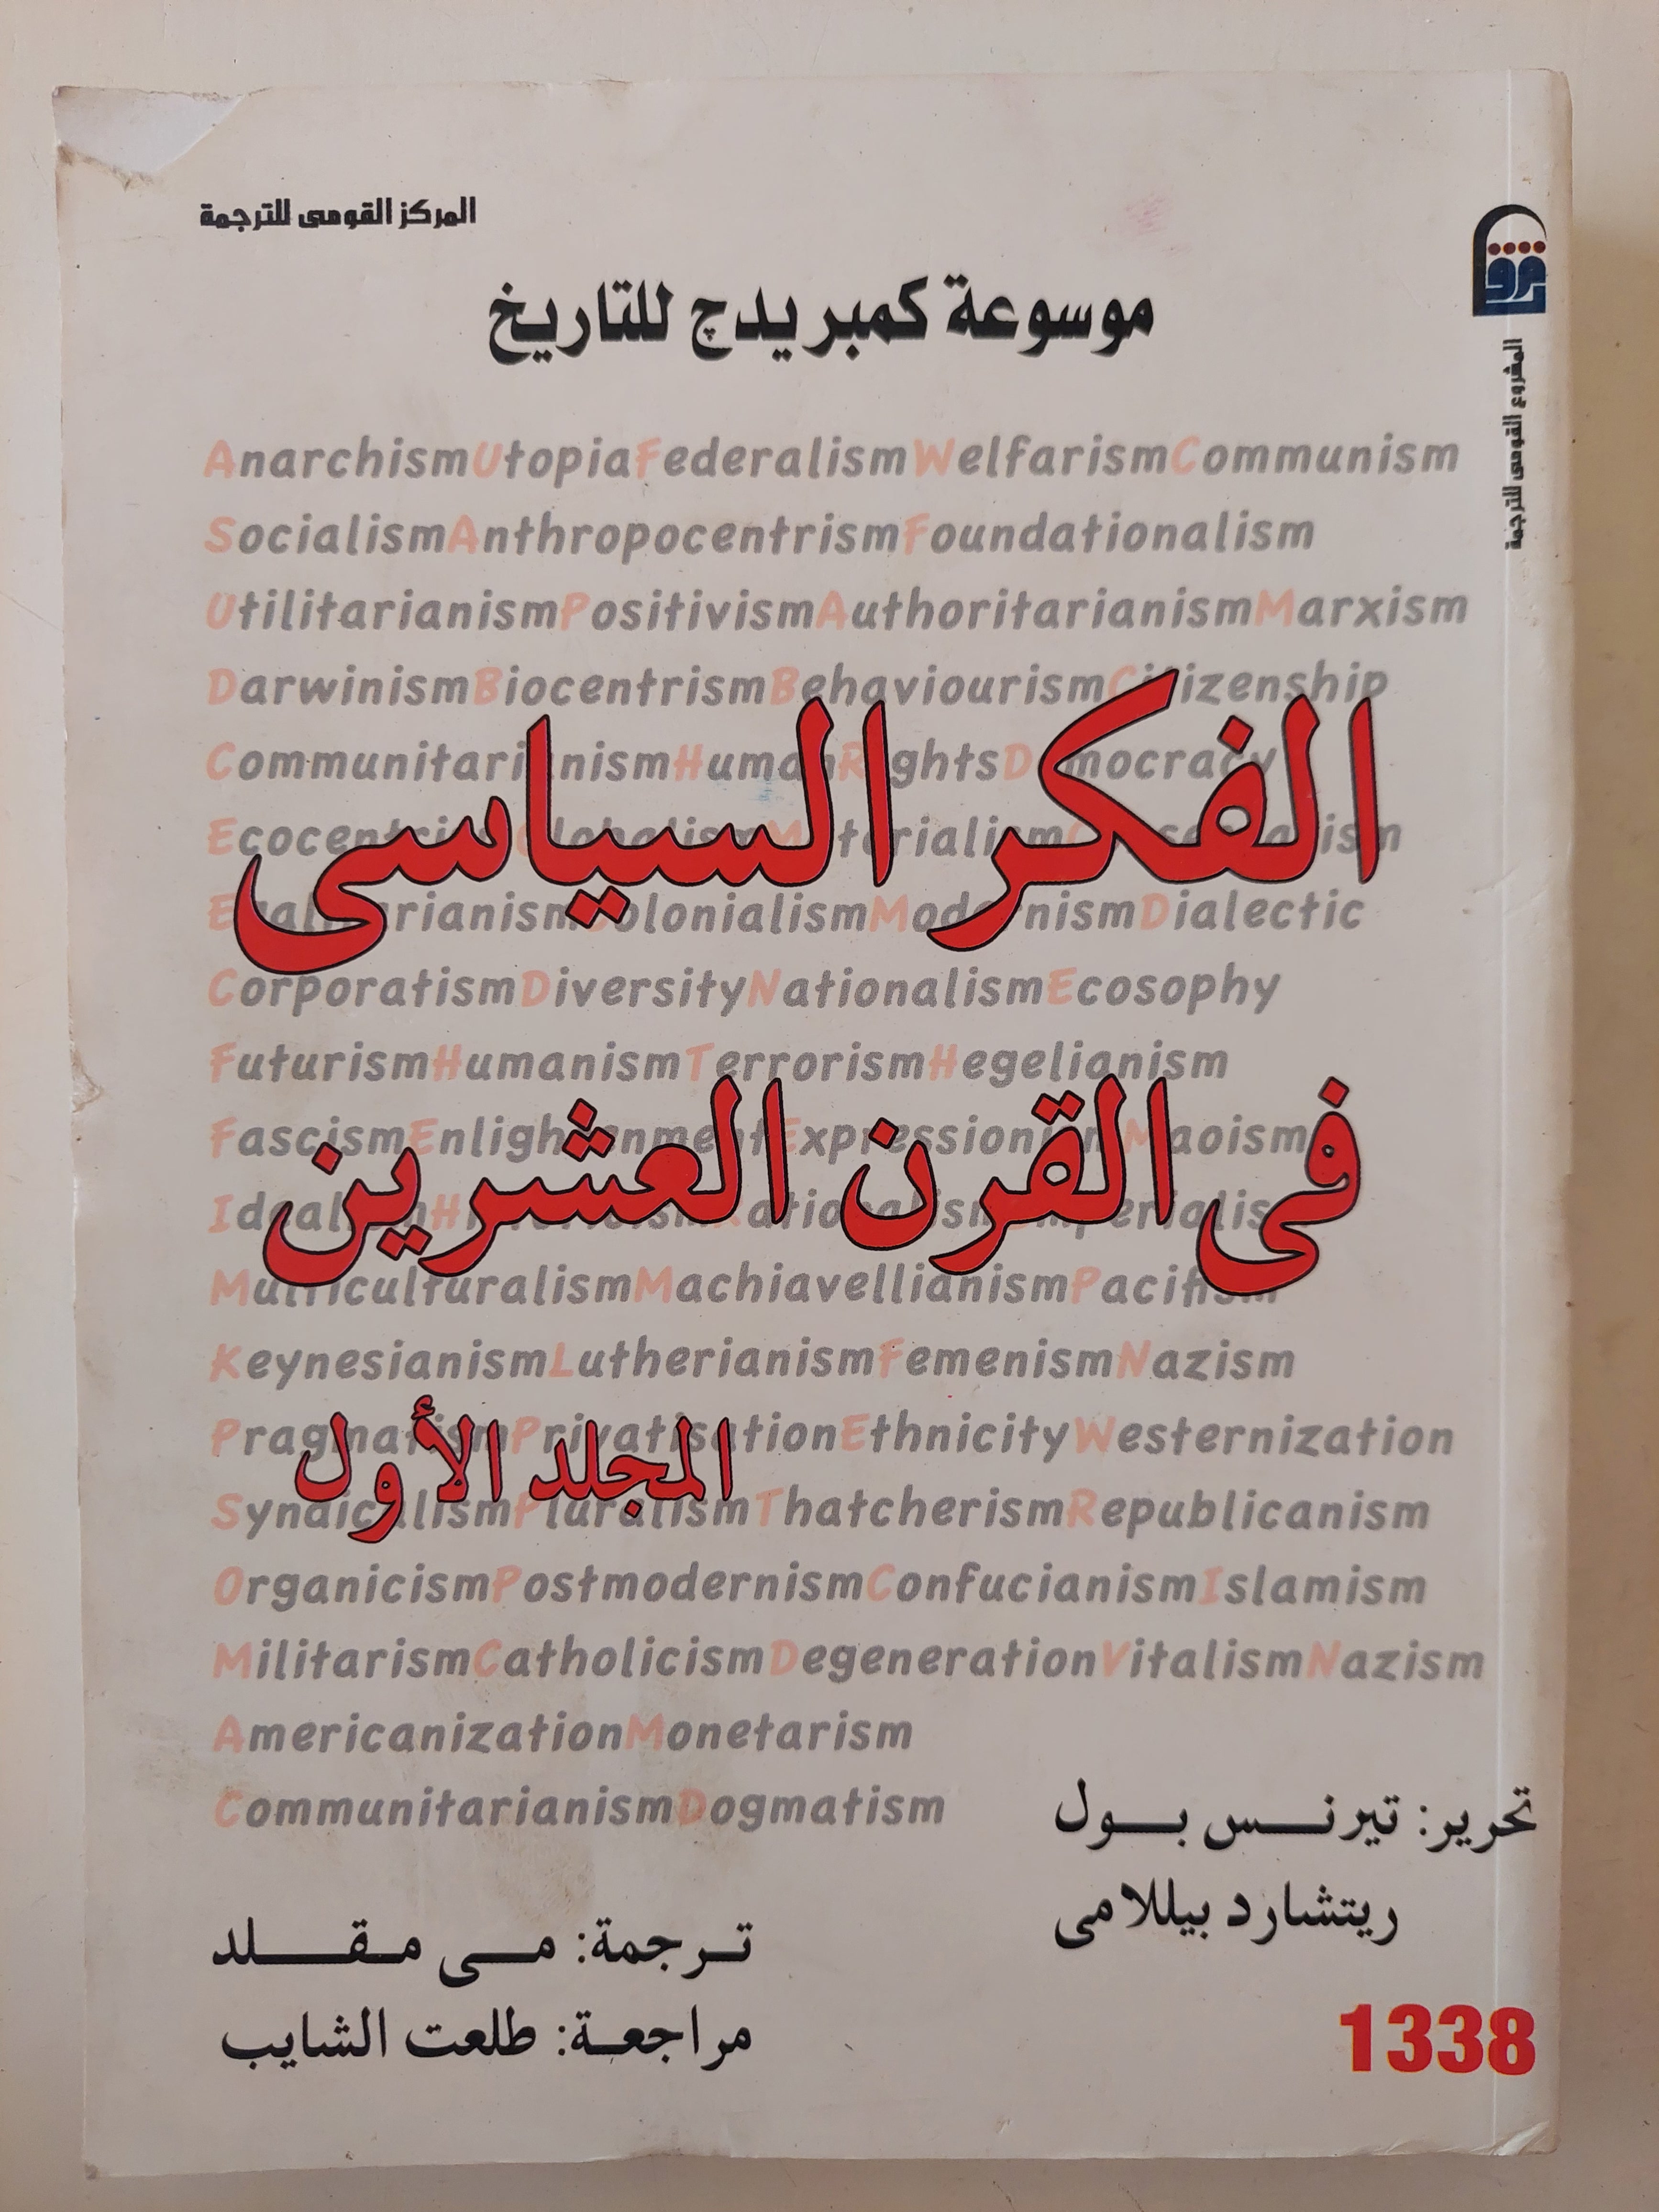 المركز القومى للترجمة
موسوعة كمبريدچ للتاريخ
المشروع القومى للترجمة
AnarchismUtopiaFederalismWelfarismCommunism
SocialismAnthropocentrismFoundationalism
UtilitarianismPositivismAuthoritarianismMarxism
DarwinismBiocentrismBehaviourismCitizenship
CommunitarianismHumanRightsDemocracy
الفكر السياسى
ModernismDialectic
CorporatismDiversityNationalismEcosophy
FuturismHumanismTerrorismHegelianism
FascismEnlightenmentExpressionismMaoism
فى القرن العشرين
MulticulturalismMachiavellianismPacifism
KeynesianismLutherianismFemenismNazism
PragmatismPrivatisationEthnicityWesternization
المجلد الأول
SyndicalismPluralismThatcherismRepublicanism
OrganicismPostmodernismConfucianismIslamism
MilitarismCatholicismDegenerationVitalismNazism
AmericanizationMonetarism
CommunitarianismDogmatism
تحرير: تيرنس بول
ريتشارد بيللامى
ترجمة: مى مقلد
مراجعة: طلعت الشايب
1338